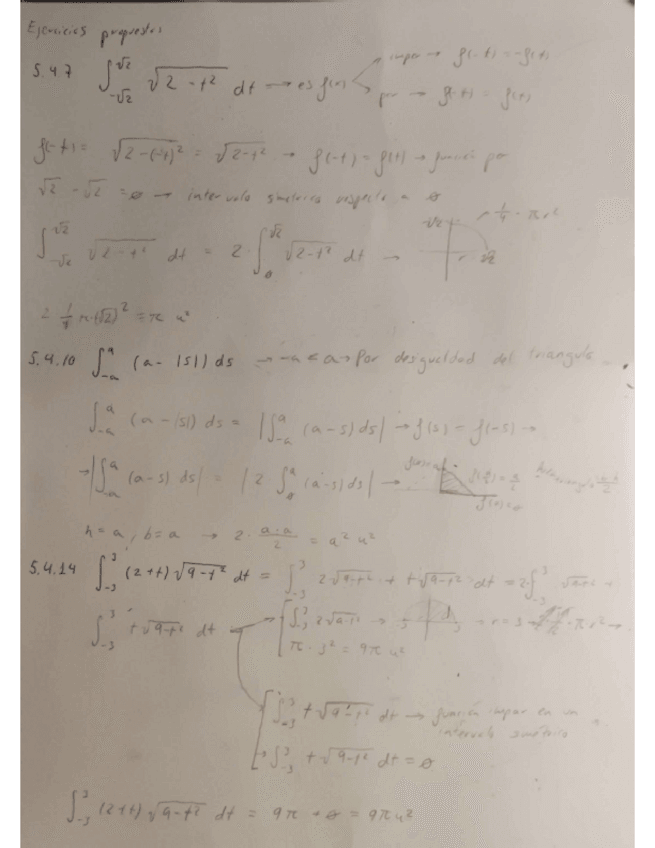 Ejercicios propuestos
5.4.7 ∫_{-√2}^{√2} √(2 - t²) dt → es f(x) impar → f(-t) = -f(t)
par → f(-t) = f(t)
f(-t) = √(2-(-t)²) = √(2-t²) → f(-t) = f(t) → función par
√2 - √2 = 0 → intervalo simétrico respecto a 0
∫_{-√2}^{√2} √(2-t²) dt = 2·∫_0^{√2} √(2-t²) dt → √2 1/4 · π r² r √2
2 1/4 π·(√2)² = π u²
5.4.10 ∫_{-a}^{a} (a - |s|) ds → -a < a → Por desigualdad del triangulo
∫_{-a}^{a} (a - |s|) ds = |∫_{-a}^{a} (a - s) ds| → f(s) = f(-s) →
→ |∫_{-a}^{a} (a-s) ds| = |2 ∫_0^a (a-s) ds| → f(a/2) = a/2 Area triangulo b·h/2
h = a, b = a → 2· a·a/2 = a² u²
5.4.14 ∫_{-3}^{3} (2+t) √(9-t²) dt = ∫_{-3}^{3} 2√(9-t²) + t√(9-t²) dt = 2∫_{-3}^{3} √(9-t²) +
∫_{-3}^{3} t√(9-t²) dt ∫_{-3}^{3} 2√(9-t²) → 3 3 → r = 3 → · π r² →
π · 3² = 9π u²
∫_{-3}^{3} t √(9-t²) dt → función impar en un
intervalo simétrico
→ ∫_{-3}^{3} t √(9-t²) dt = 0
∫_{-3}^{3} (2+t) √(9-t²) dt = 9π + 0 = 9π u²